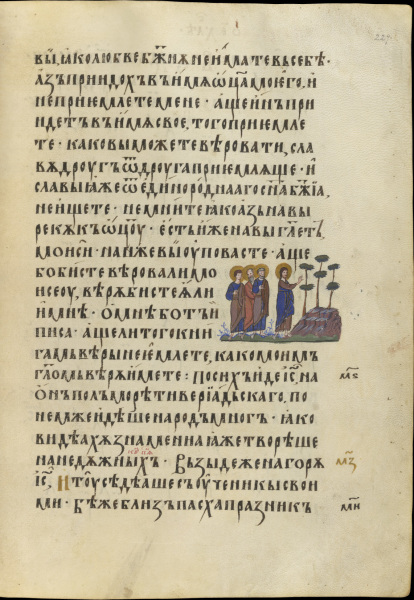 вы, ꙗко любве бж҃иѧ не имате въ себѣ ·
Азъ прїидохъ въ имѧ ѡц҃а моего, и
не прїемлете мене · аще инъ прї
идетъ въ имѧ свое, того прїемле
те · како вы можете вѣровати, сла
вѫ дроугъ ѿ дроуга прїемлѧще · и
славы ꙗже ѿ единороднааго сн҃а бж҃їа,
не ищете · не мните ꙗко азъ на вы
рекѫ къ ѡц҃оу · есть иже на вы гл҃етъ,
мѡиси · на нже вы оуповасте · аще
бо бисте вѣровали мо
исеоу, вѣрѫ бисте ѧли
и мнѣ · о мнѣ бо тъи
писа · аще ли того кни
гамъ вѣры не емлете, како моимъ
гл҃ѡмъ вѣрѫ имете : По сихъ иде іс҃, на
онъ полъ морѣ тивериадьскаго, по
немже идѣше народъ многъ · ꙗко
видѣахѫ знаменна ꙗже творѣше
на недѫжныхъ · Възыде же на горѫ
іс҃, и тоу сѣдѣаше съ оученикы свои
ми · бѣ же близъ пасха празникъ
мѕ
мз
ми